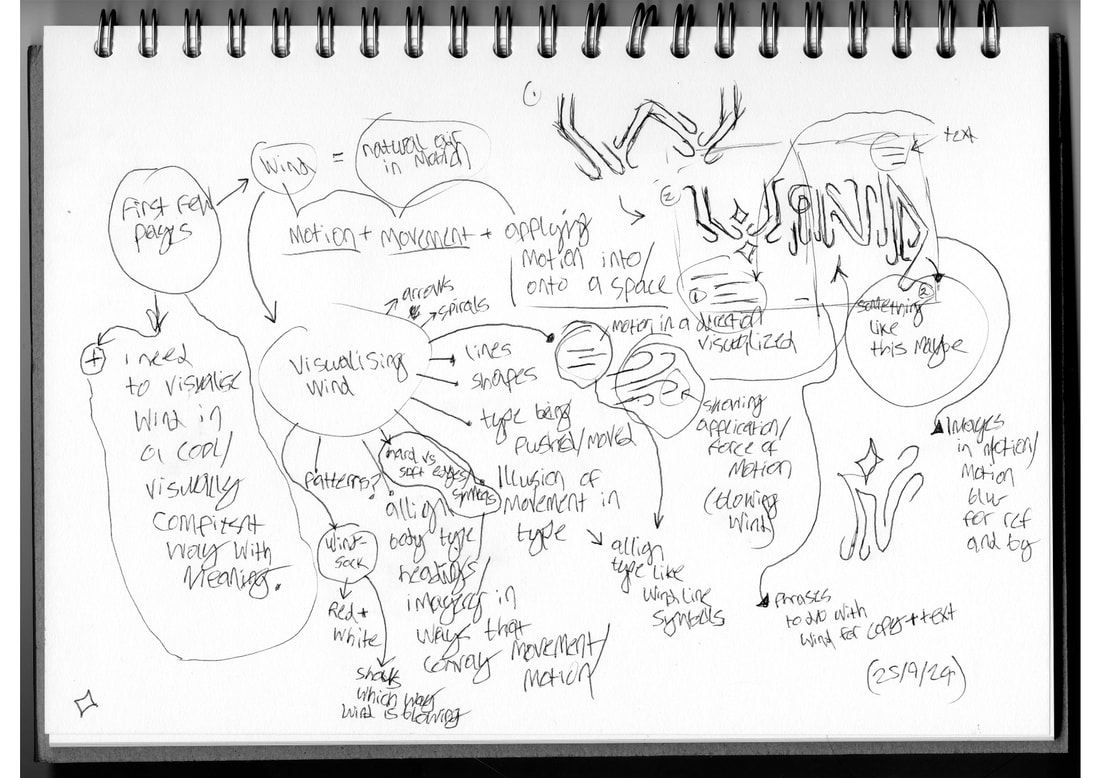 First few
pages
wind
=
natural air
in motion
motion + movement + applying
motion into/
onto a space
I need
to visualise
wind in
a cool/
visually
compitent
way with
meaning.
Visualising
wind
arrows
& spirals
lines
shapes
type being
pushed/moved
Illusion of
movement in
type
hard vs
soft edges/
symbols
patterns?
wind-
sock
Red +
white
shows
which way
wind is blowing
allign
body type
headings/
imagery in
ways that
convay movement/
motion
motion in a direction
visualized
showing
application/
force of
motion
(blowing
wind)
allign
type like
wind line
symbols
1
W
2
WIND
text
1
2
something
like
this maybe
Images
in motion/
motion
blur
for ref
and bg
phrases
to do with
wind for copy + text
(25/9/24)